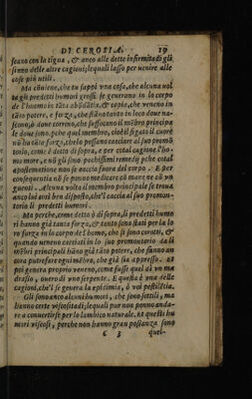 DI CEROSIA. 19
scano con la tigna, & anco alle dette infirmità di gli
sanno delle altre cagioni, le quali lasso per uenire alle
cose più utili.
Ma conuiene, che tu sappi una cosa, che alcuna uol
ta gli predetti humori grossi se generano in lo corpo
de l'huomo in tāta abōdātia, & copia, che ueneno in
tāto potere, e forza, che si
scono, ò doue correno, che suffocano il mēbro principa
le doue sono.
nō ha tāta forza, che lo possano cacciare al suo promō
torio, come è detto di sopra, e per cotal cagione l'ho-
mo more, e nō gli sono pochissimi remedij pche cotal
apostematione non se caccia fuora del corpo. E per
consequentia nō se ponno medicare cō mare ne cō un
guenti. Alcuna uolta il membro principale se troua
anco lui assi ben disposto, che l' caccia al suo promon-
torio li predetti humori.
Ma perche, come detto è di sopra, li predetti humo
ri hanno già tanta forza, & tanto sono stati per la lo
ro forza in lo corpo de l'homo, che si sono corotti, &
quando ueneno cacciati in lo suo promontorio da li
mēbri principali hāno già tāto potere, che fanno an
cora putrefare ogni mēbro, che già sia appresso. Et
poi genera proprio ueneno, come fusse quel dà un ma
drasso, ouero di uno serpente. E questa è una delle
cagioni, che'l se genera la epidimia, ò uoi pestilētia.
Gli sono anco alcuni humori, che sono sottili, ma
hanno certe uiscositadi; le quali pur non ponno anda-
re a conuertirse per lo lambico naturale. Et questi hu
mori uiscosi, perche non hanno gran possanza sono
C 3 quel-